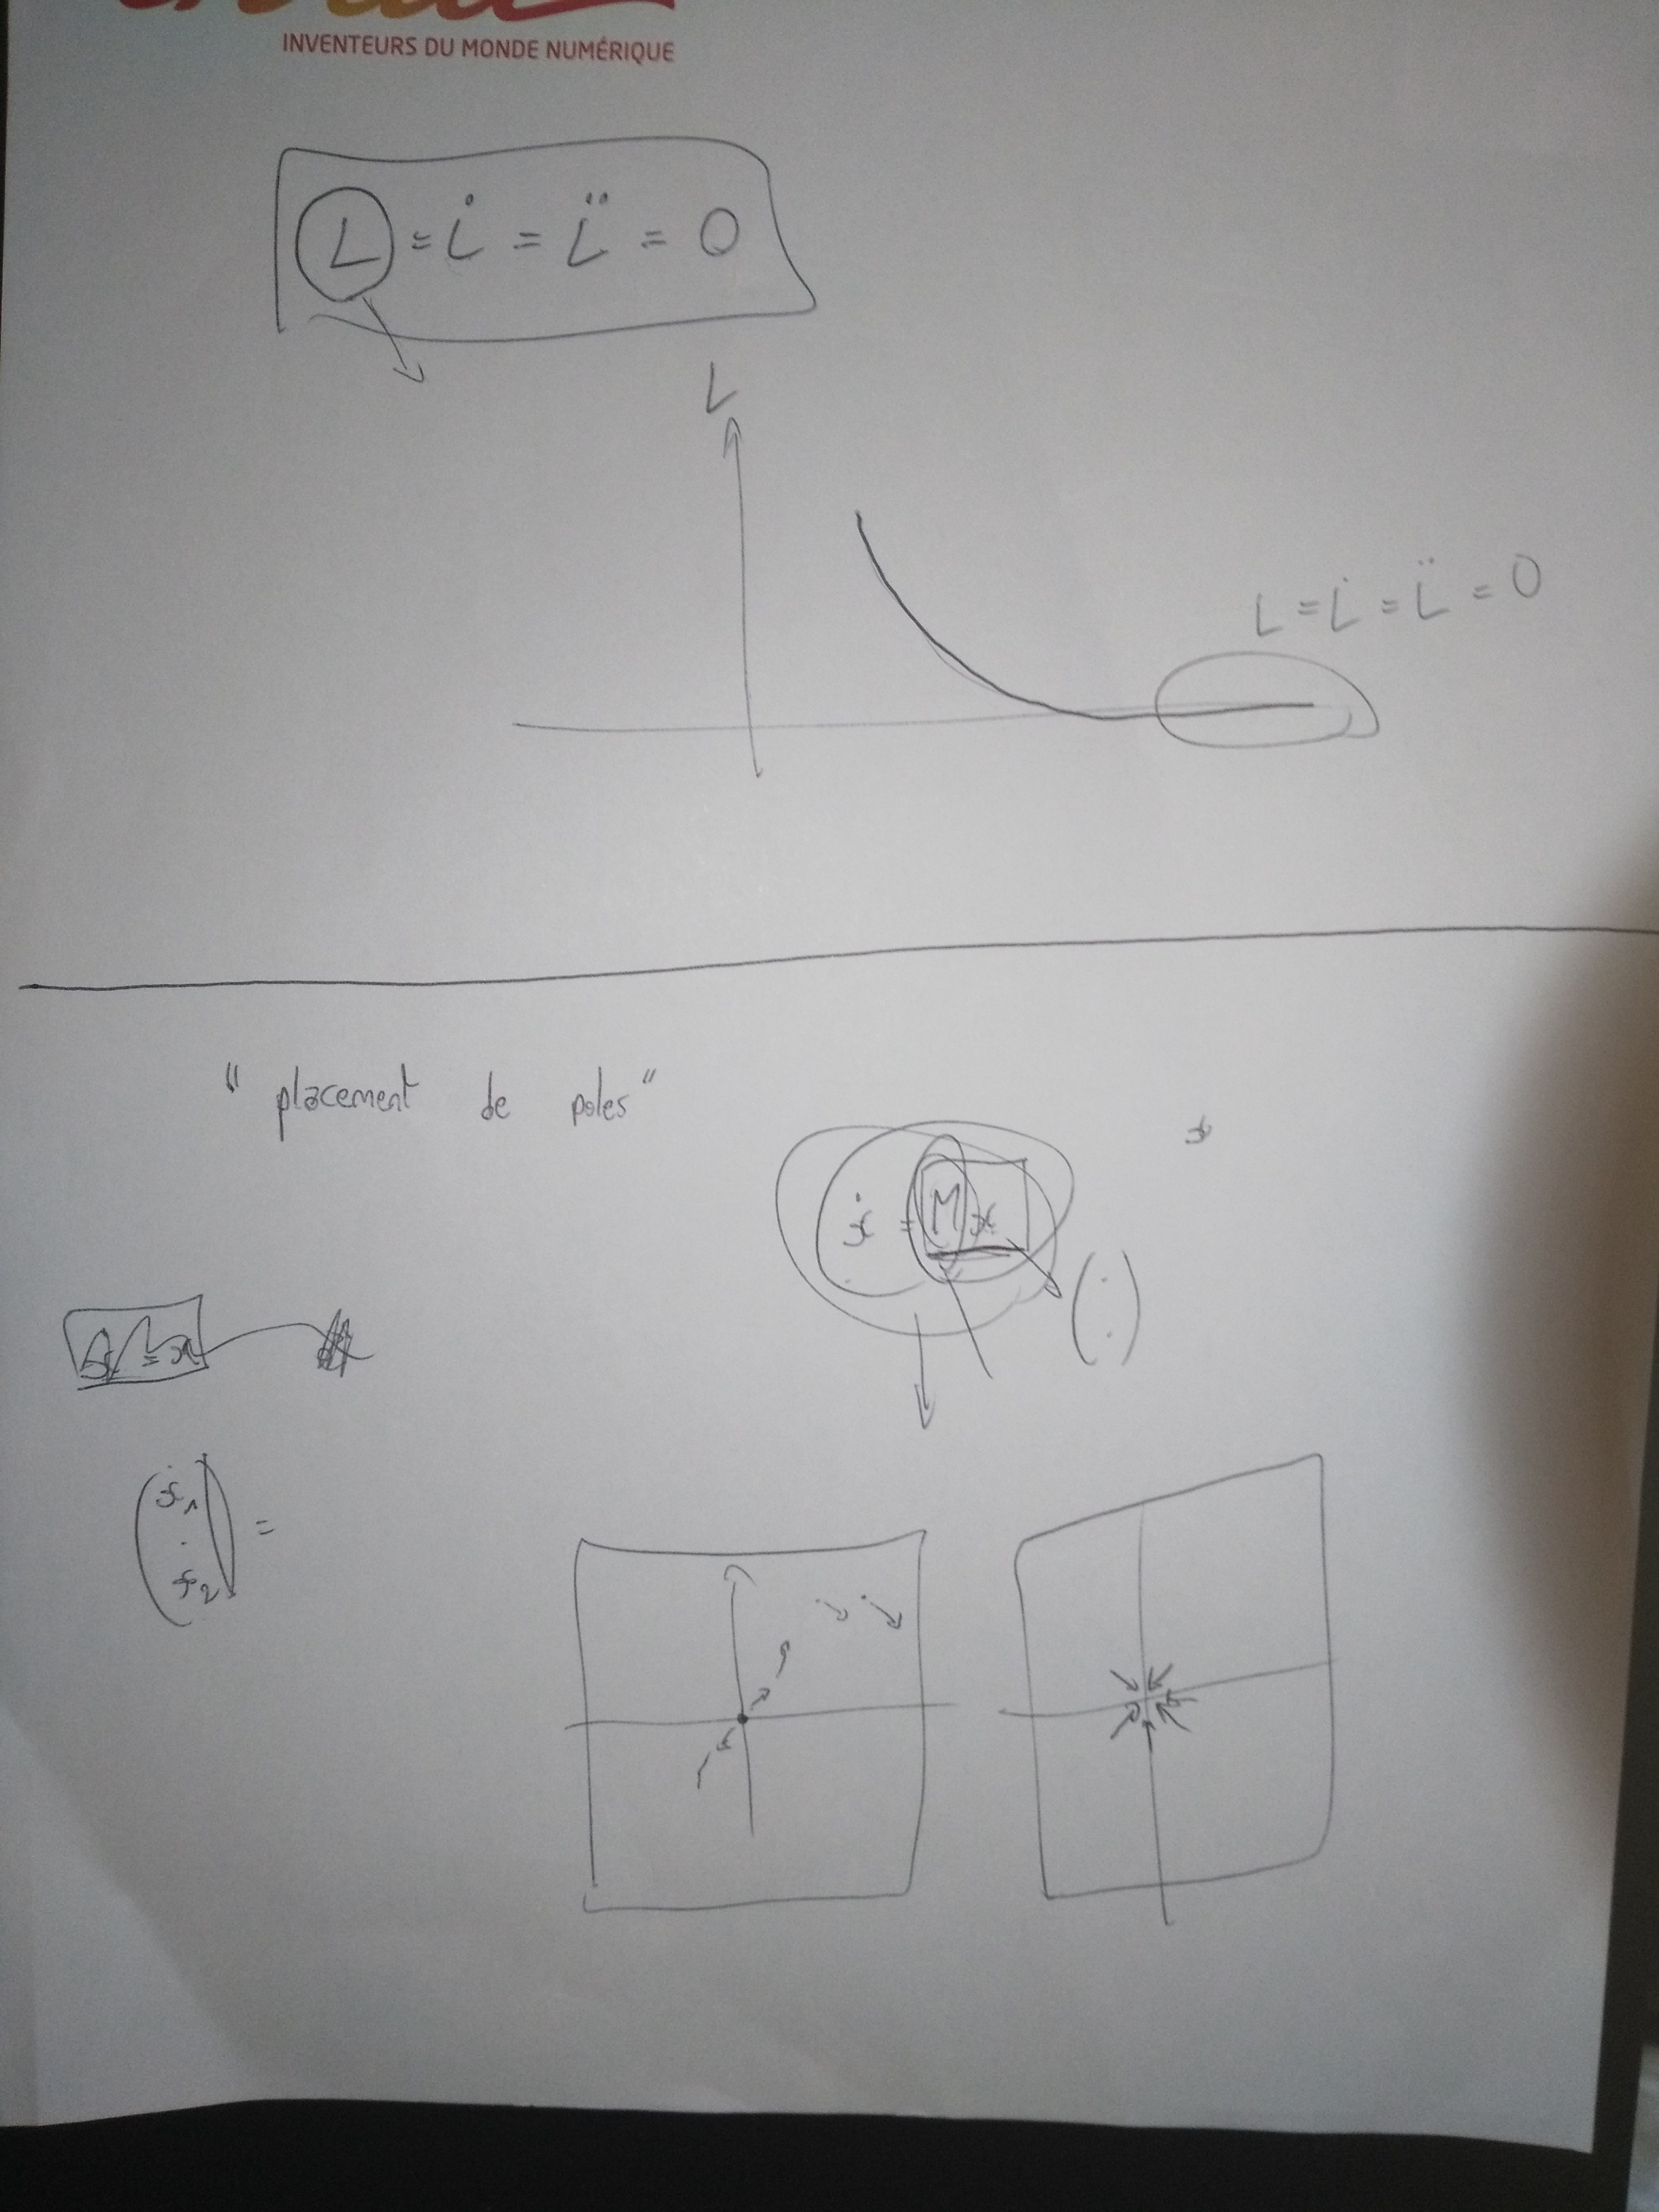 INVENTEURS DU MONDE NUMÉRIQUE
L = L̇ = L̈ = 0
L
L = L̇ = L̈ = 0
"placement de poles"
ẋ = Mx
( : )
ẋ₁
ẋ₂
=